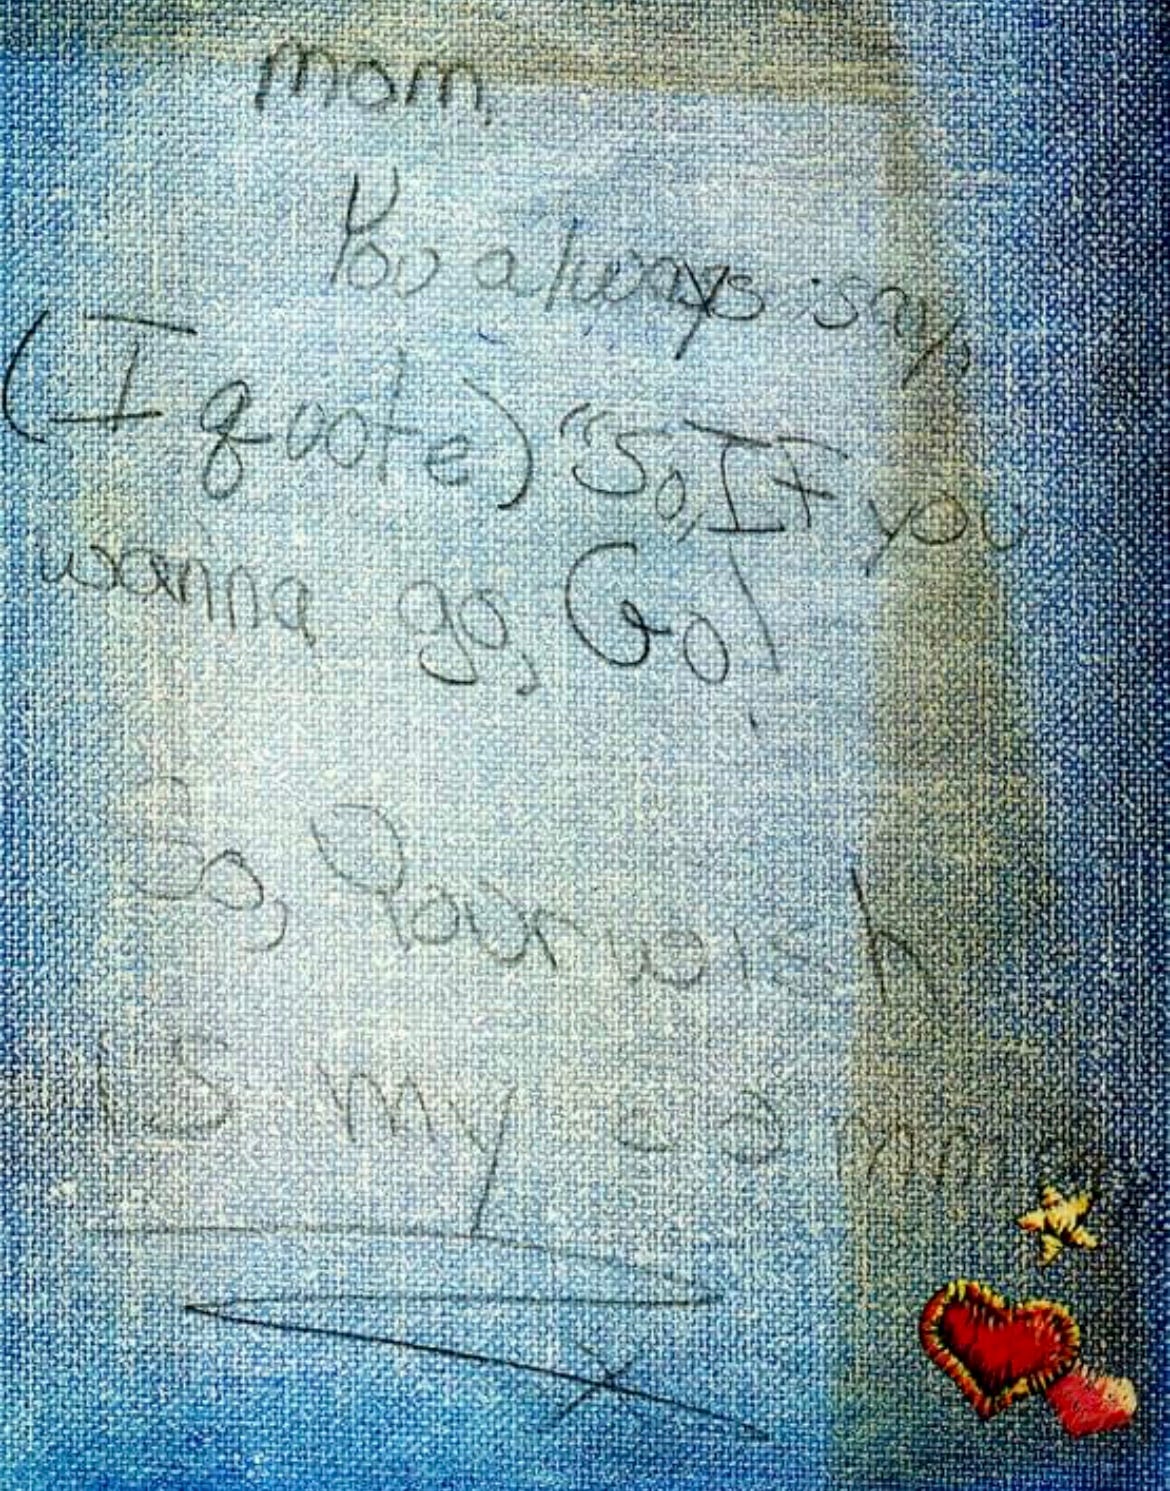 mom,
You always say,
(I quote) "So, IF you
wanna go, Go!
So, Your wish
is my comm
x